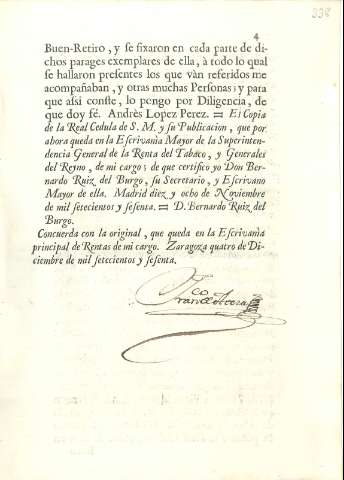 338
4
Buen-Retiro, y se fixaron en cada parte de di-
chos parages exemplares de ella, à todo lo qual
se hallaron presentes los que vàn referidos me
acompañaban, y otras muchas Personas; y para
que assi conste, lo pongo por Diligencia, de
que doy fé. Andrès Lopez Perez. = Es Copia
de la Real Cedula de S. M. y su Publicacion, que por
ahora queda en la Escrivanìa Mayor de la Superinten-
dencia General de la Renta del Tabáco, y Generales
del Reyno, de mi cargo; de que certifico yo Don Ber-
nardo Ruiz del Burgo, su Secretario, y Escrivano
Mayor de ella. Madrid diez y ocho de Noviembre
de mil setecientos y sesenta. = D. Bernardo Ruiz del
Burgo.
Concuerda con la original, que queda en la Escrivanìa
principal de Rentas de mi cargo. Zaragoza quatro de Di-
ciembre de mil setecientos y sesenta.